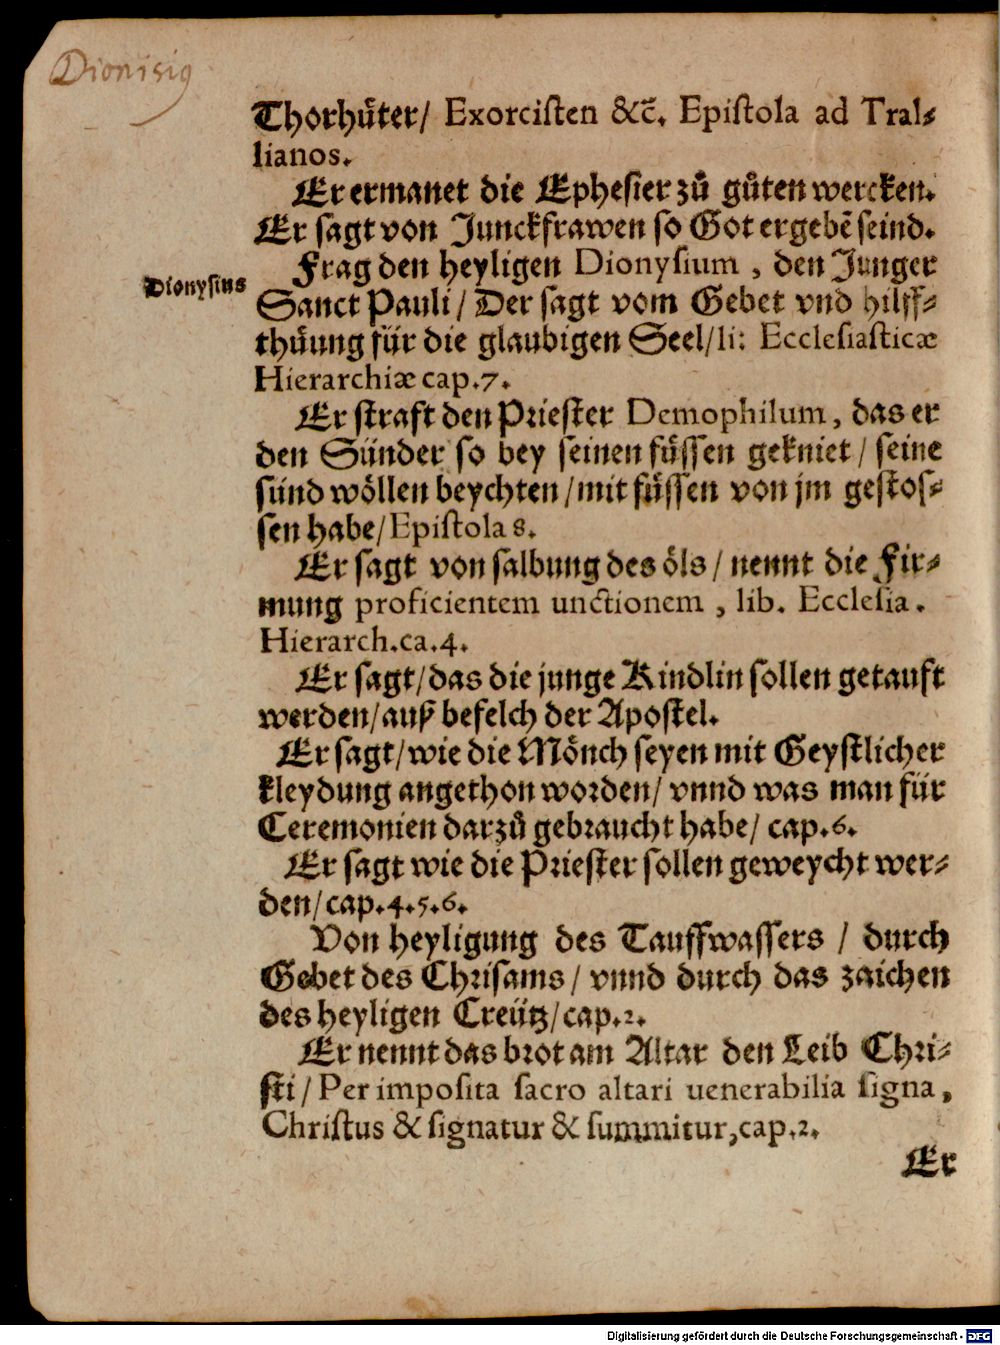 Dionisiꝰ
Thorhuͤter/ Exorcisten &c̃. Epistola ad Tral⸗
lianos.
Er ermanet die Ephesier zuͦ guͦten wercken.
Er sagt von Junckfrawen so Got ergebẽ seind.
Frag den heyligen Dionysium, den Junger
Dionysius
Sanct Pauli/ Der sagt vom Gebet vnd hilff⸗
thuͦung für die glaubigen Seel/ li: Ecclesiasticæ
Hierarchiæ cap.7.
Er straft den Priester Demophilum, das er
den Sünder so bey seinen fuͤssen gekniet/ seine
sünd woͤllen beychten/ mit fuͤssen von jm gestos⸗
sen habe/ Epistola 8.
Er sagt von salbung des oͤls/ nennt die Fir⸗
mung proficientem unctionem, lib. Ecclesia.
Hierarch.ca.4.
Er sagt/ das die junge Kindlin sollen getauft
werden/ auß befelch der Apostel.
Er sagt/ wie die Moͤnch seyen mit Geystlicher
kleydung angethon worden/ vnnd was man für
Ceremonien darzuͦ gebraucht habe/ cap.6.
Er sagt wie die Priester sollen geweycht wer⸗
den/ cap.4.5.6.
Von heyligung des Tauffwassers / durch
Gebet des Chrisams/ vnnd durch das zaichen
des heyligen Creütz/ cap.2.
Er nennt das brot am Altar den Leib Chri⸗
sti/ Per imposita sacro altari uenerabilia signa,
Christus & signatur & summitur, cap.2.
Er
Digitalisierung gefördert durch die Deutsche Forschungsgemeinschaft - DFG